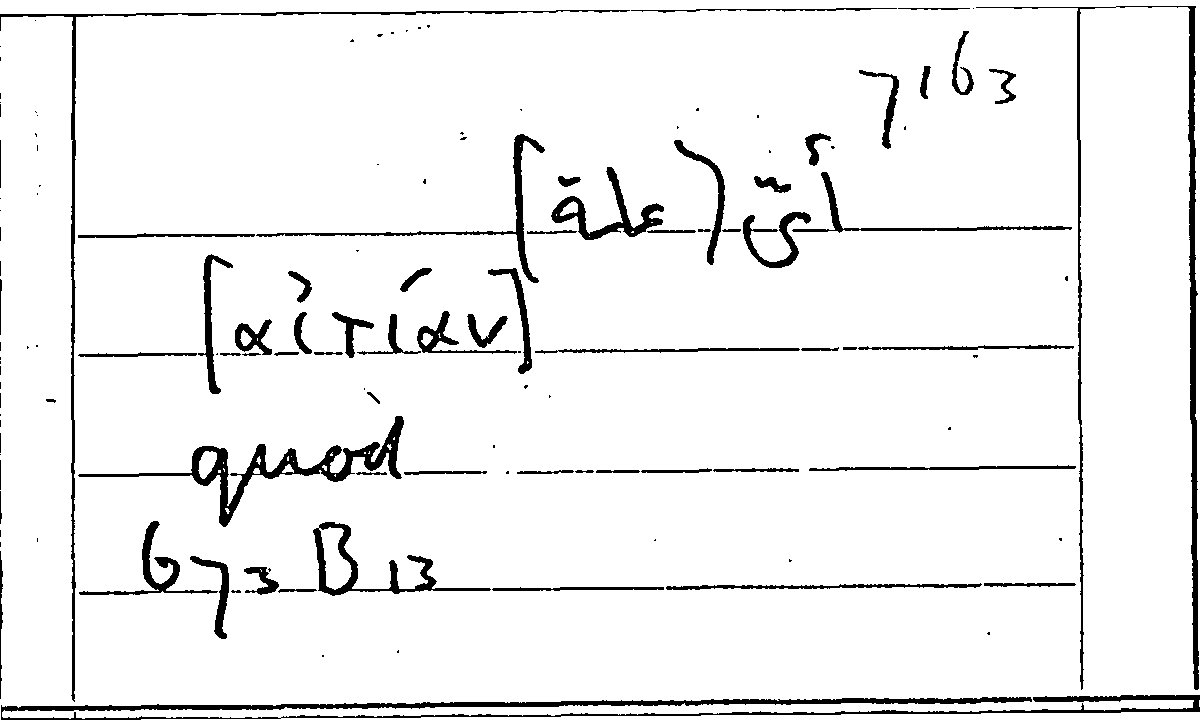 7163
أيّ (علة]
[αἰτίαν]
quod
673 B 13